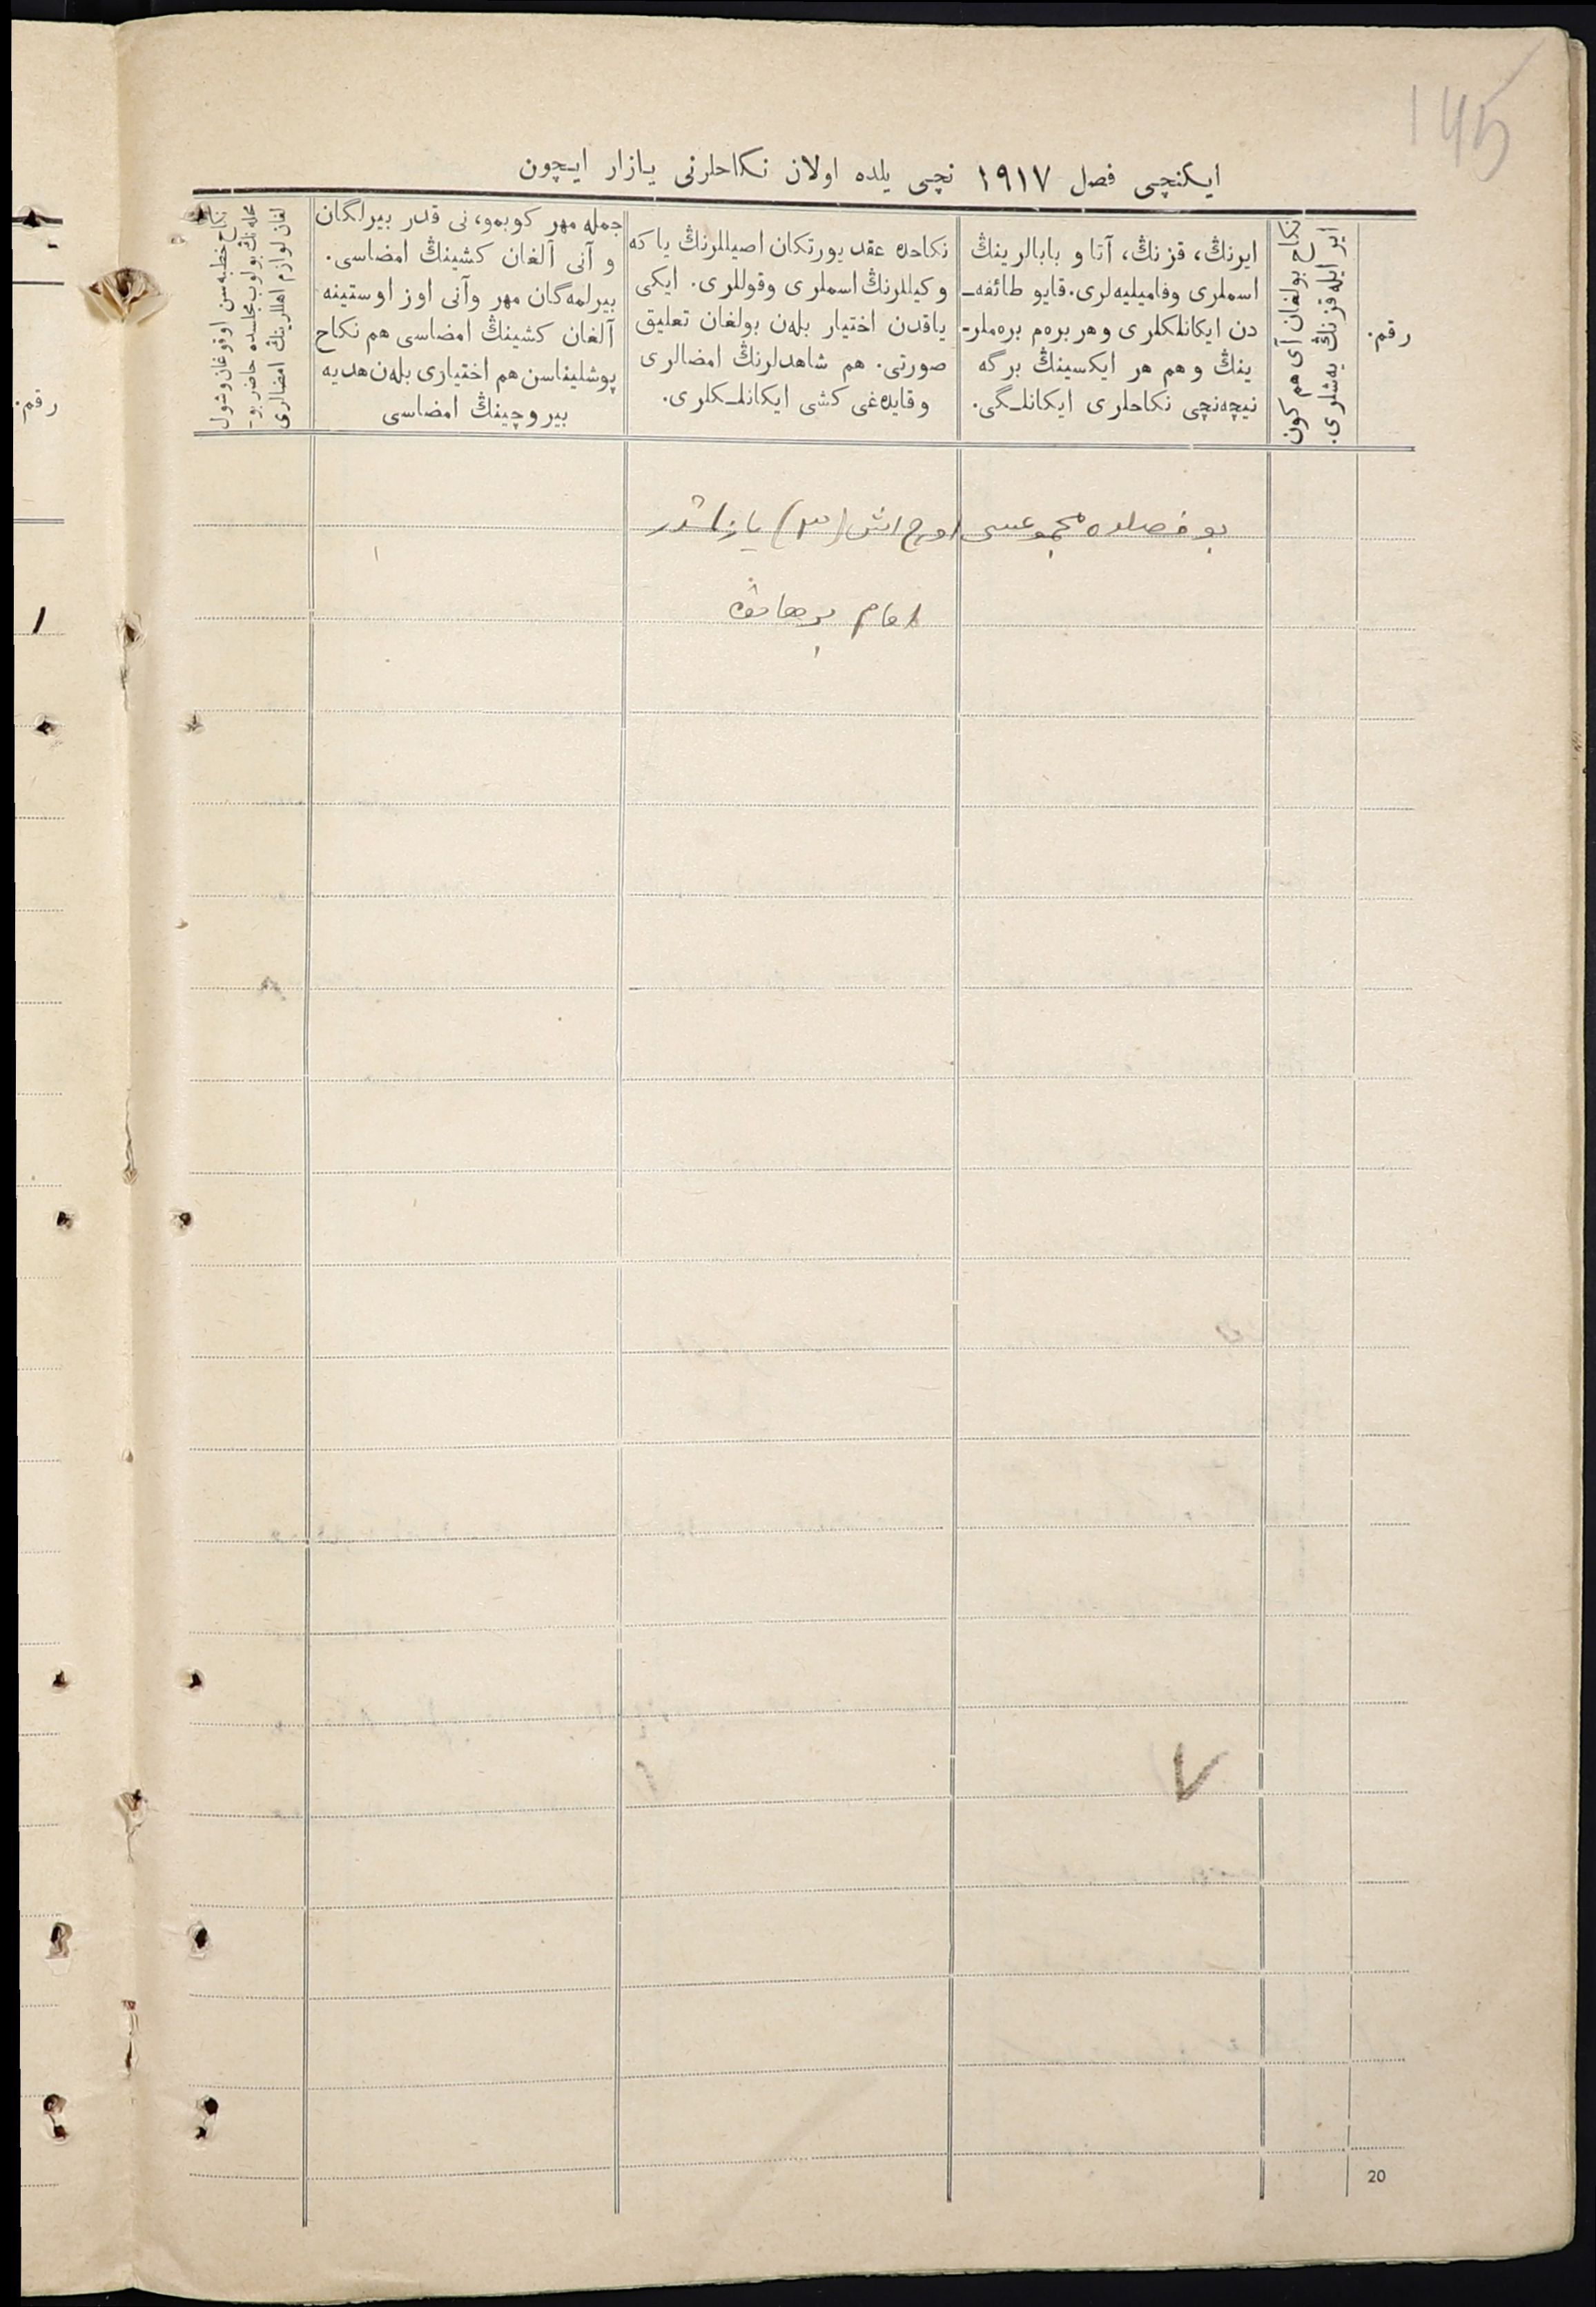 145
ايكنچی فصل ١٩١٧ نچی يلده اولان نكاحلرنی يازار ايچون
رقم.
نكاح بولغان آی هم كون
اير ايله قزنڭ يه‌شلری.
ايرنڭ، قزنڭ، آتا و بابالرينڭ
اسملری وفاميليه‌لری. قايو طائفه‌ـ
دن ايكانلكلری وهر بره‌م بره‌ملرـ
ينڭ و هم هر ايكسينڭ برگه
نيچه‌نچی نكاحلری ايكانلـگی.
نكاحده عقد يورتكان اصيللرنڭ ياكه
وكيللرنڭ اسملری وقوللری. ايكی
ياقدن اختيار بله‌ن بولغان تعليق
صورتی. هم شاهدلرنڭ امضالری
وقايده‌غی كشی ايكانلـكلری.
جمله مهر كوبمو، نی قدر بيرلگان
و آنی آلغان كشينڭ امضاسی.
بيرلمه‌گان مهر وآنی اوز اوستينه
آلغان كشينڭ امضاسی هم نكاح
پوشليناسن هم اختياری بله‌ن هديه
بيروچينڭ امضاسی
نكاح خطبه‌سن اوقوغان وشول
محله‌نڭ بولوب مجلسده حاضر بوـ
لغان لوازم اهللرينڭ امضالری
بو فصلده مجموعسی اوچ اش (٣) يازلمشدر
امام برهانف
20
رقم.
١